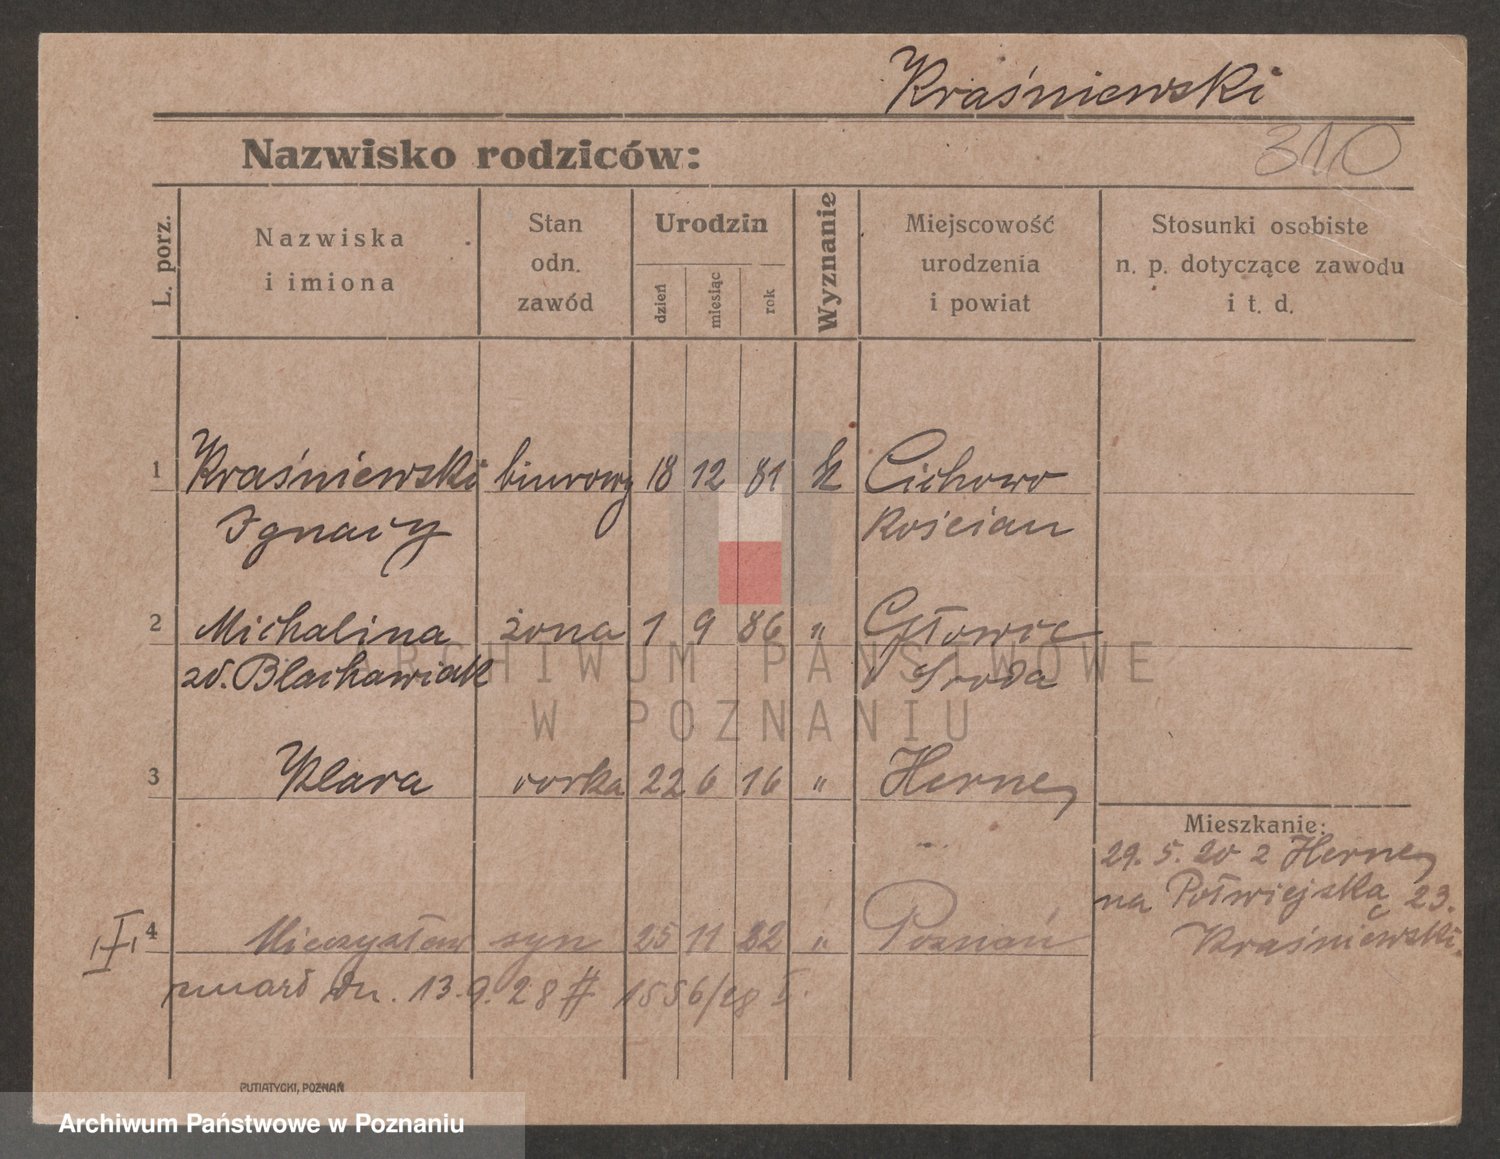 Kraśniewski
310
Nazwisko rodziców:
L. porz.
Nazwiska
i imiona
Stan
odn.
zawód
Urodzin
dzień
miesiąc
rok
Wyznanie
Miejscowość
urodzenia
i powiat
Stosunki osobiste
n. p. dotyczące zawodu
i t. d.
1 Kraśniewski biurowy 18 12 81 k Cichowo
Ignacy Kościan
2 Michalina żona 1 9 86 „
zd. Blachawiak Środa
3 Klara córka 22 6 16 „ Herne
Mieszkanie:
29. 5. 20 z Herne
na Półwiejską 23.
Kraśniewski.
4 Mieczysław syn 25 11 22 „ Poznań
zmarł dn. 13.9.28 # 1556/zg I.
PUTIATYCKI, POZNAŃ
ARCHIWUM PAŃSTWOWE
W POZNANIU
Archiwum Państwowe w Poznaniu